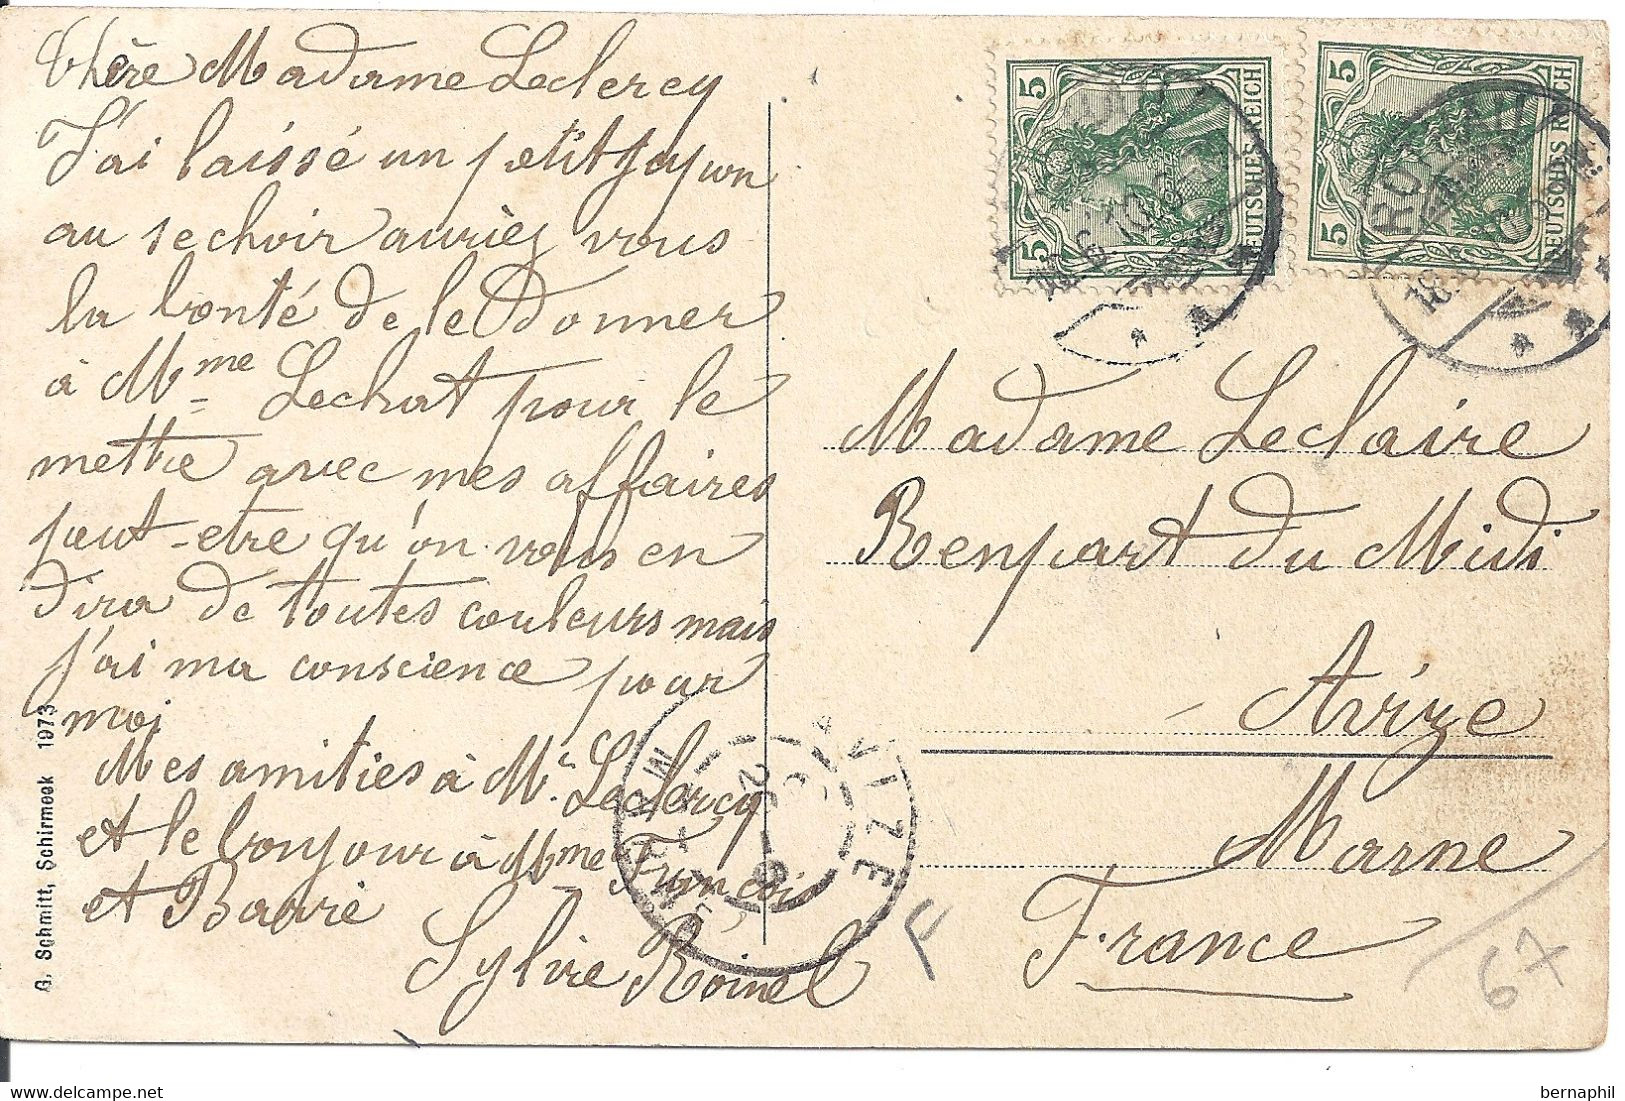 Chère Madame Leclercq
J'ai laissé un petit jupon
au sechoir auriez vous
la bonté de le donner
à Mme Lechat pour le
mettre avec mes affaires
peut-etre qu'on vous en
dira de toutes couleurs mais
j'ai ma conscience pour
moi
Mes amitiés à Mr Leclercq
et le bonjour à Mme François
et Barré
Sylvie Roinel
G. Schmitt, Schirmeck 1973
5 5 DEUTSCHES REICH
5 5 DEUTSCHES REICH
Madame Leclaire
Renpart du Midi
Avize
Marne
France
AVIZE
67
bernaphil